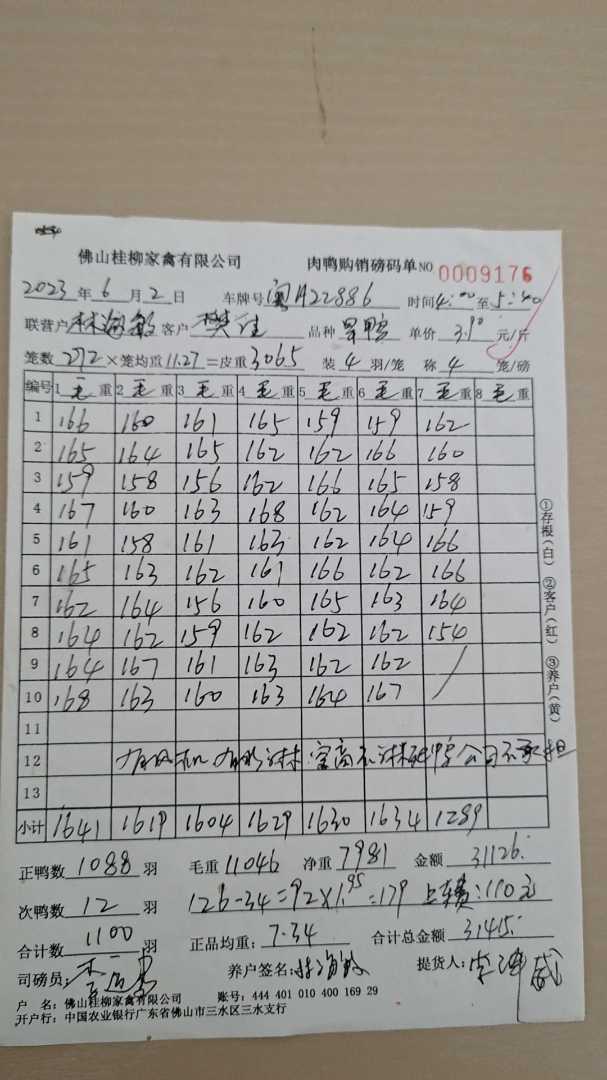 佛山桂柳家禽有限公司 肉鸭购销磅码单 NO 0009176
2023年6月2日 车牌号 粤A22886 时间4:00至5:40
联营户 林海敏 客户 樊 品种 旱鸭 单价 3.90 元/斤
笼数 272 ×笼均重 11.27 =皮重 3065 装 4 羽/笼 称 4 笼/磅
编号 1 毛 重 2 毛 重 3 毛 重 4 毛 重 5 毛 重 6 毛 重 7 毛 重 8 毛 重
1 166 160 161 165 159 159 162
2 165 164 165 162 162 166 160
3 159 158 156 162 166 165 158
4 167 160 163 168 162 164 159
5 161 158 161 163 162 164 166
6 165 163 162 161 166 162 166
7 162 164 156 160 165 163 164
8 164 162 159 162 162 162 154
9 164 167 161 163 162 162
10 168 163 160 163 164 167
11
12 有风机 有水淋 公司不承担
13
小计 1641 1619 1604 1629 1630 1634 1289
正鸭数 1088 羽 毛重 11046 净重 7981 金额 31126.
次鸭数 12 羽 126-34=92×1.95=179 上车费:110元
合计数 1100 羽 正品均重: 7.34 合计总金额 31415.
司磅员: 养户签名: 林海敏 提货人:
户 名: 佛山桂柳家禽有限公司 账号: 444 401 010 400 169 29
开户行: 中国农业银行广东省佛山市三水区三水支行
①存根(白) ②客户(红) ③养户(黄)